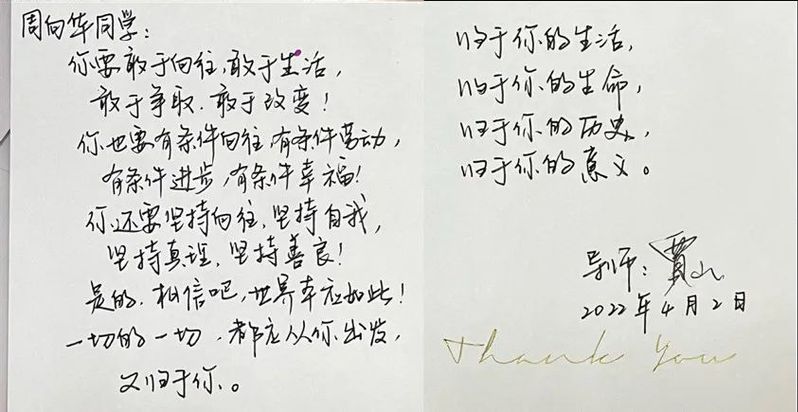 周向华同学：
你要敢于向往，敢于生活，
敢于争取，敢于改变！
你也要有条件向往，有条件劳动，
有条件进步，有条件幸福！
你还要坚持向往，坚持自我，
坚持真理，坚持善良！
是的，相信吧，世界本应如此！
一切的一切，都应从你出发，
又归于你。
归于你的生活，
归于你的生命，
归于你的历史，
归于你的意义。
导师：贾
2022年4月2日
Thank You